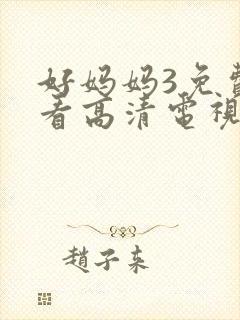 好妈妈3免費
看高清電視
趙子来